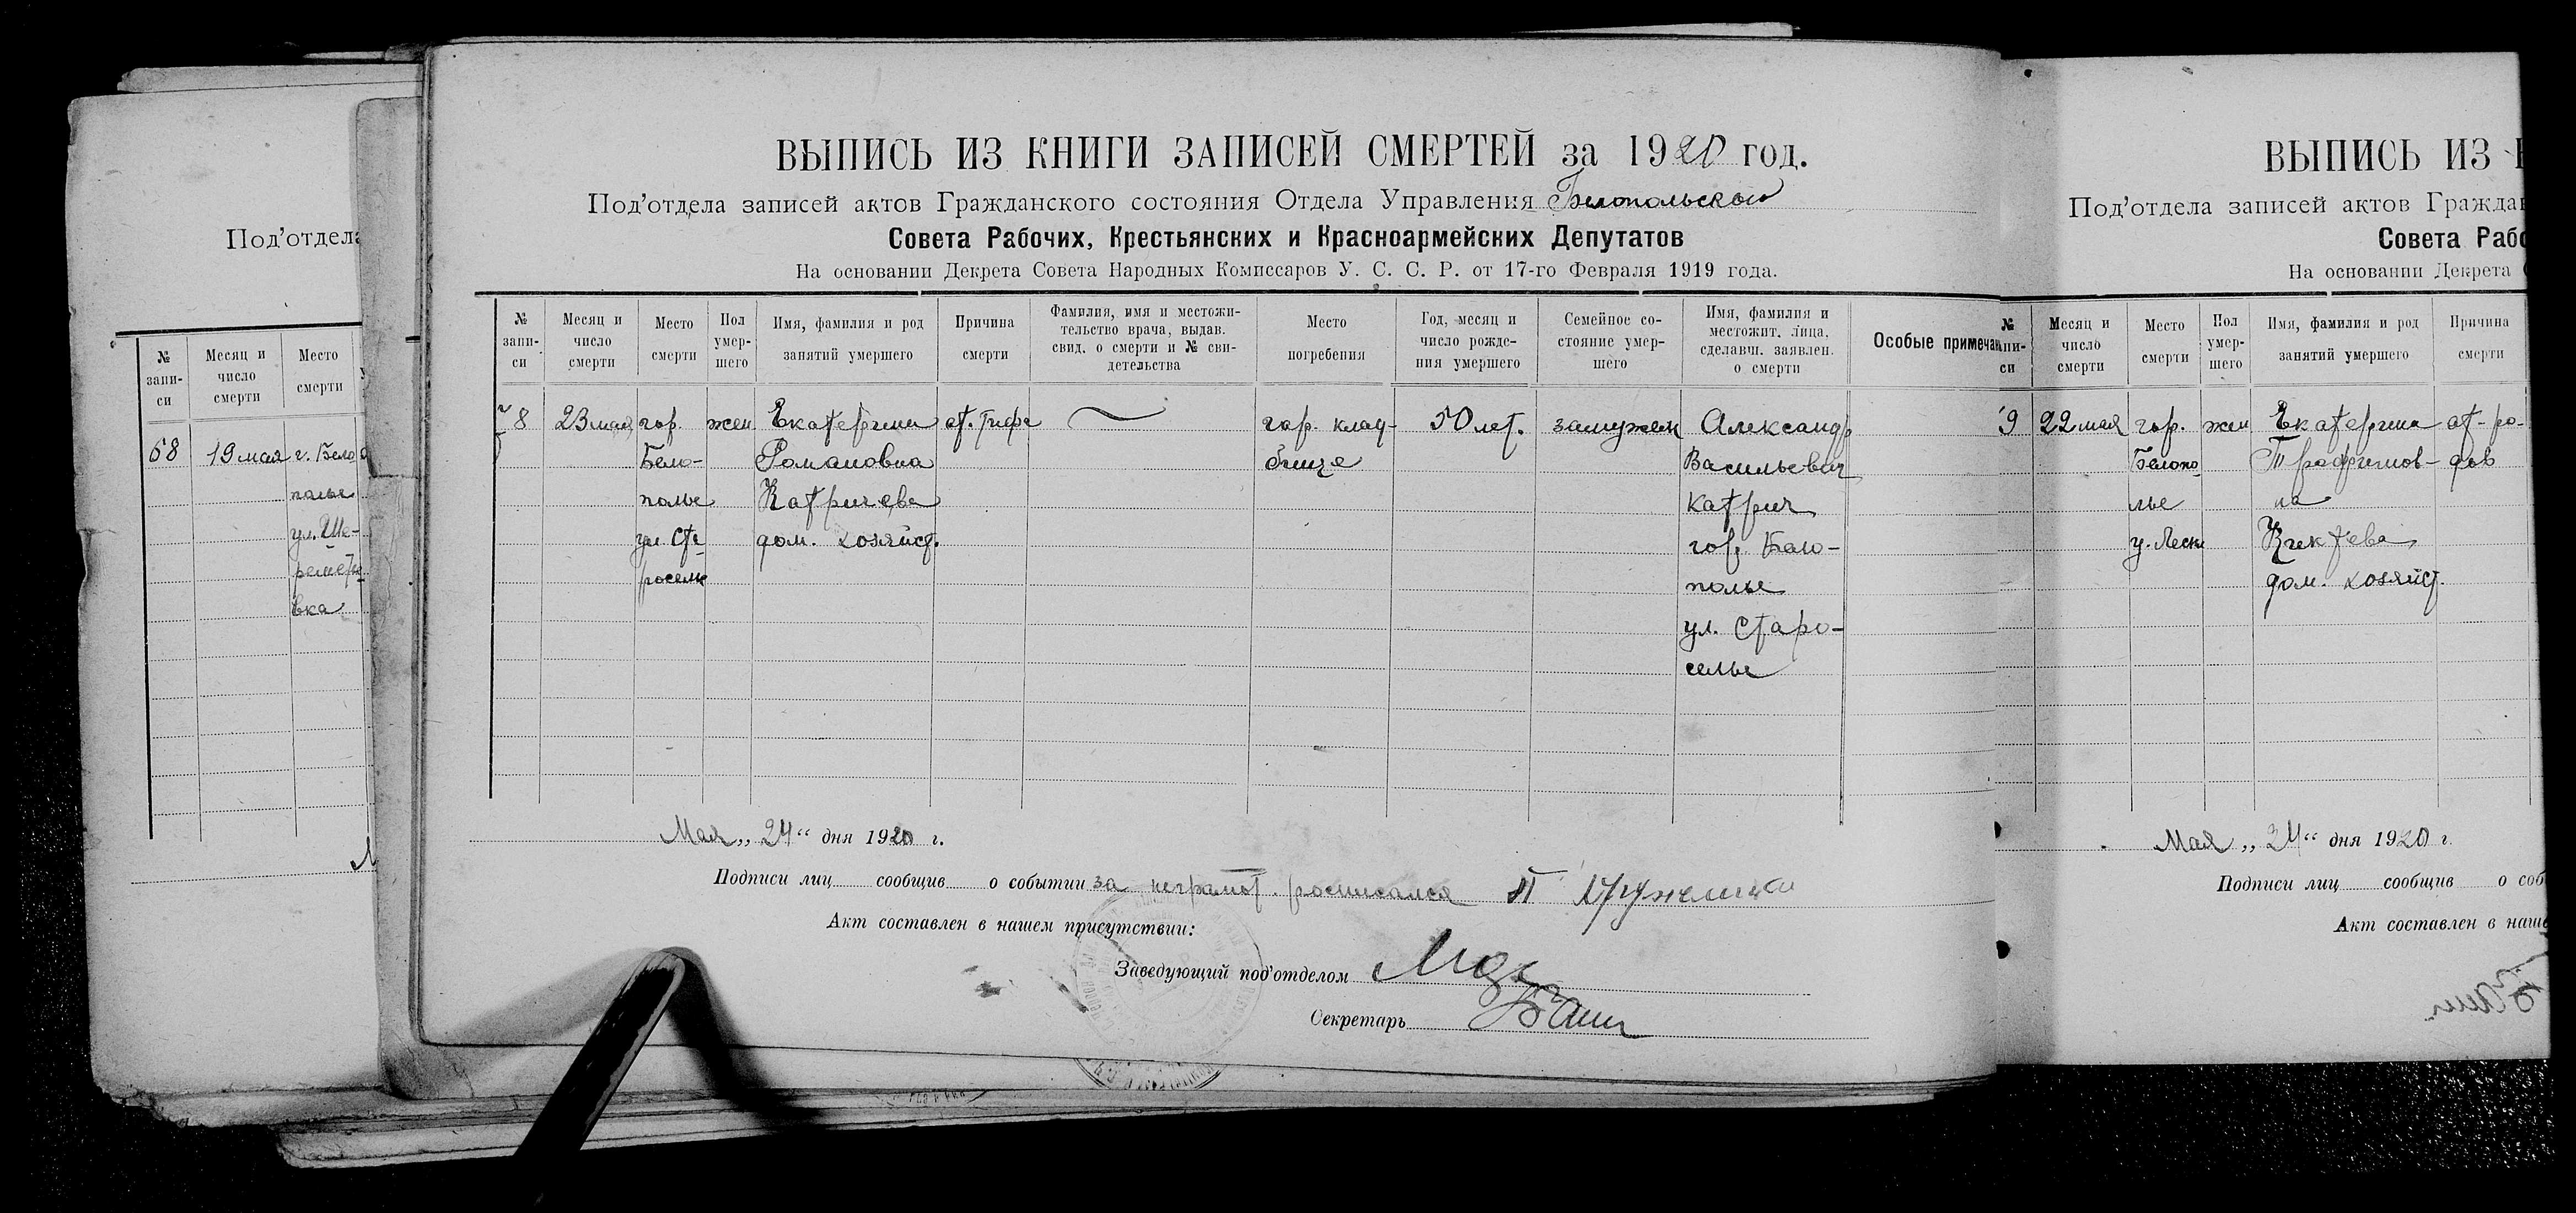 Под'отдела
№ запи- си
Месяц и число смерти
Место смерти
68 19 мая г. Бело
полье
ул. Ше-
ремета
вка
ВЫПИСЬ ИЗ КНИГИ ЗАПИСЕЙ СМЕРТЕЙ за 1920 год.
Под'отдела записей актов Гражданского состояния Отдела Управления Белопольского
Совета Рабочих, Крестьянских и Красноармейских Депутатов
На основании Декрета Совета Народных Комиссаров У. С. С. Р. от 17-го Февраля 1919 года.
№ запи- си
Месяц и число смерти
Место смерти
Пол умер- шего
Имя, фамилия и род занятий умершего
Причина смерти
Фамилия, имя и местожи- тельство врача, выдав. свид. о смерти и № сви- детельства
Место погребения
Год, месяц и число рожде- ния умершего
Семейное со- стояние умер- шего
Имя, фамилия и местожит. лица, сделавш. заявлен. о смерти
Особые примечан
78 23 мая гор. жен Екатерина от. Тифа гор. клад- 50 лет. замужем Александр
Бело- Романовна бище Васильевич
полье Катричева Катрич
ул. Ста дом. хозяйст. гор. Бело-
роселье полье
ул. Старо-
селье
Мая „24“ дня 1920 г.
Подписи лиц сообщив о событии за неграмот. росписался
Акт составлен в нашем присутствии:
Заведующий под'отделом
Секретарь
ВЫПИСЬ ИЗ К
Под'отдела записей актов Граждан
Совета Рабо
На основании Декрета С
№ пи- си
Месяц и число смерти
Место смерти
Пол умер- шего
Имя, фамилия и род занятий умершего
Причина смерти
9 22 мая гор. жен Екатерина от-ро-
Белопо Трофимов- дов
лье на
у. Леск
дом. хозяйст.
Мая „24“ дня 1920 г.
Подписи лиц сообщив о соб
Акт составлен в наше